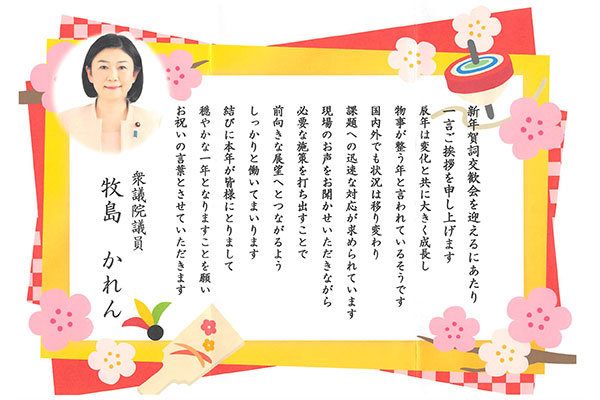 新年賀詞交歓会を迎えるにあたり
一言ご挨拶を申し上げます
辰年は変化と共に大きく成長し
物事が整う年と言われているそうです
国内外でも状況は移り変わり
課題への迅速な対応が求められています
現場のお声をお聞かせいただきながら
必要な施策を打ち出すことで
前向きな展望へとつながるよう
しっかりと働いてまいります
結びに本年が皆様にとりまして
穏やかな一年となりますことを願い
お祝いの言葉とさせていただきます
衆議院議員
牧島 かれん